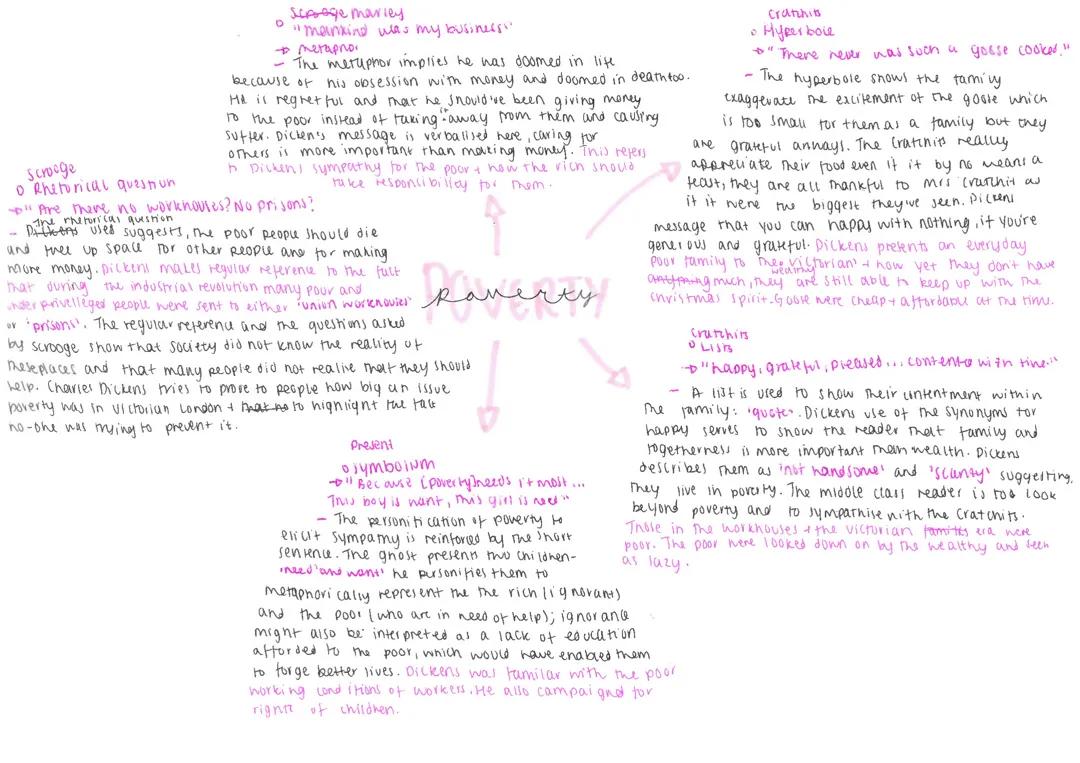 Scrooge Marley
"Mankind was my business"
→ Metaphor
- The metaphor implies he was doomed in life
because of his obsession with money and doomed in death too.
He is regretful and that he should've been giving money
to the poor instead of taking it away from them and causing
suffer. Dicken's message is verbalised here, caring for
others is more important than making money. This refers
to Dickens sympathy for the poor + how the rich should
take responsibility for them.
Cratchits
Hyperbole
→ "There never was such a goose cooked."
- The hyperbole shows the family
exaggerate the excitement of the goose which
is too small for them as a family but they
are grateful anways. The Cratchits really
appreciate their food even if it by no means a
feast, they are all thankful to Mrs Cratchit as
if it were the biggest they've seen. Dickens
message that you can happy with nothing, if you're
generous and grateful. Dickens presents an everyday
poor family to the wealthy victorian + how yet they don't have
anything much, they are still able to keep up with the
christmas spirit. Goose were cheap + affordable at the time.
Scrooge
Rhetorical question
→ "Are there no workhouses? No prisons?
The rhetorical question
- Dickens used suggests, the poor people should die
and free up space for other people and for making
more money. Dickens makes regular reference to the fact
that during the industrial revolution many poor and
under privelleged people were sent to either 'union workhouses'
or 'prisons'. The regular reference and the questions asked
by scrooge show that society did not know the reality of
these places and that many people did not realise that they should
help. Charles Dickens tries to prove to people how big an issue
poverty was in Victorian London + that no to highlight the fact
no-one was trying to prevent it.
POVERTY
poverty
Cratchits
Lists
→ "happy, grateful, pleased... contented with time."
- A list is used to show their contentment within
the family: 'quote'. Dickens use of the synonyms for
happy serves to show the reader that family and
togetherness is more important than wealth. Dickens
describes them as 'not handsome' and 'scanty' suggesting,
they live in poverty. The middle class reader is too look
beyond poverty and to sympathise with the Cratchits.
Those in the workhouses + the victorian families era were
poor. The poor were looked down on by the wealthy and seen
as lazy.
Present
symbolism
→ "Because [poverty] needs it most...
This boy is want, this girl is need"
- The personification of poverty to
elicit sympathy is reinforced by the short
sentence. The ghost present two children-
'need' and want' he personifies them to
metaphorically represent the the rich (ignorant)
and the poor (who are in need of help); ignorance
might also be interpreted as a lack of education
afforded to the poor, which would have enabled them
to forge better lives. Dickens was familar with the poor
working conditions of workers. He also campaigned for
rights of children.